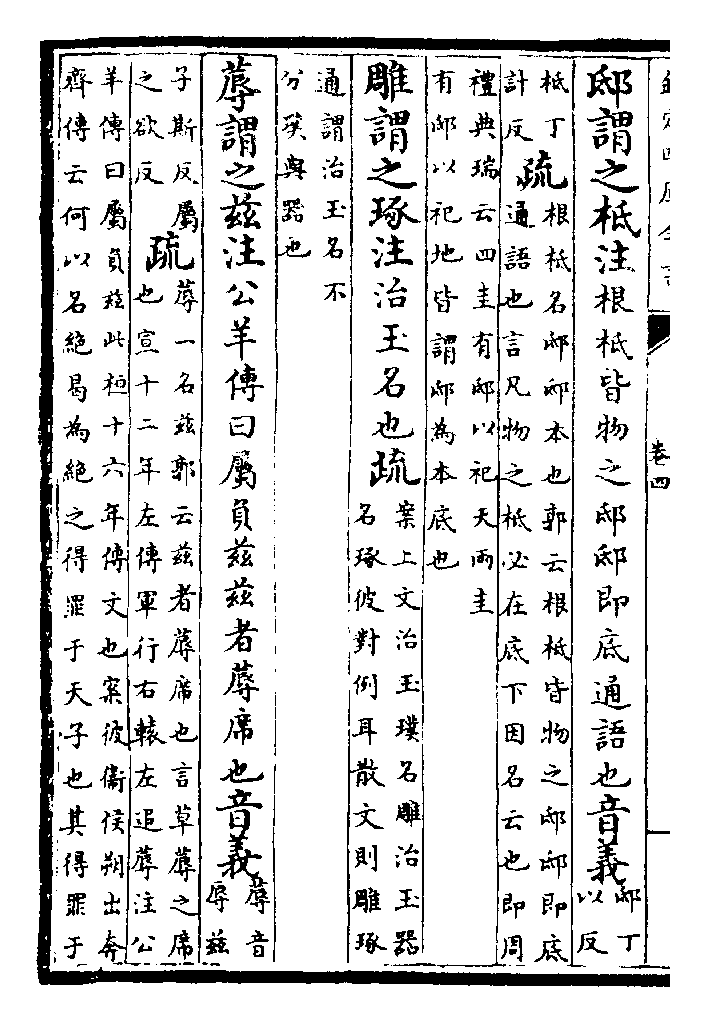 卷四
邸謂之柢注根柢皆物之邸邸即底通語也音義邸丁
以反
柢丁
計反
疏根柢名邸邸本也郭云根柢皆物之邸邸即底
通語也言凡物之柢必在底下因名云也即周
禮典瑞云四圭有邸以祀天兩圭
有邸以祀地皆謂邸為本底也
雕謂之琢注治玉名也疏案上文治玉璞名雕治玉器
名琢彼對例耳散文則雕琢
通謂治玉名不
分璞與器也
蓐謂之兹注公羊傳曰屬負兹兹者蓐席也音義蓐音
辱兹
子斯反屬
之欲反
疏蓐一名兹郭云兹者蓐席也言草蓐之席
也宣十二年左傳軍行右轅左追蓐注公
羊傳曰屬負兹此桓十六年傳文也案彼衞侯朔出奔
齊傳云何以名絶曷為絶之得罪于天子也其得罪于